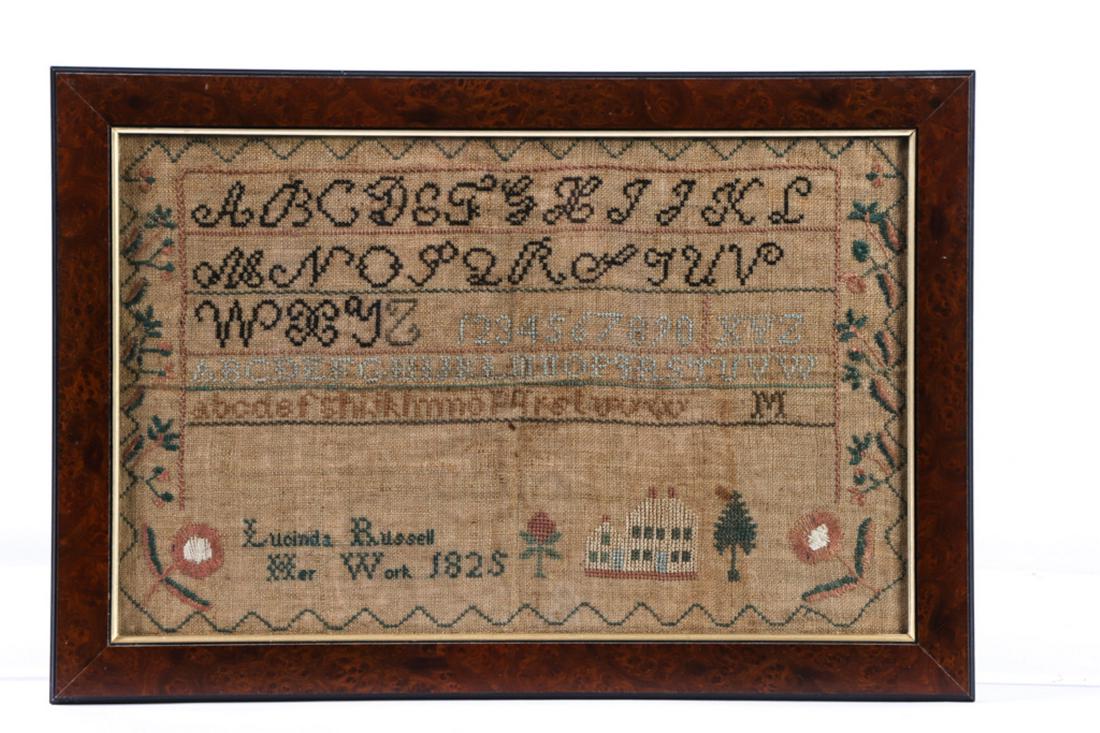 A B C D E F G H I J K L
M N O P Q R S T U V
W X Y Z 1234567890 XYZ
ABCDEFGHIJKLMNOPQRSTUVW
abcdefghijklmnopqrstuvw M
Lucinda Russell
Her Work 1825